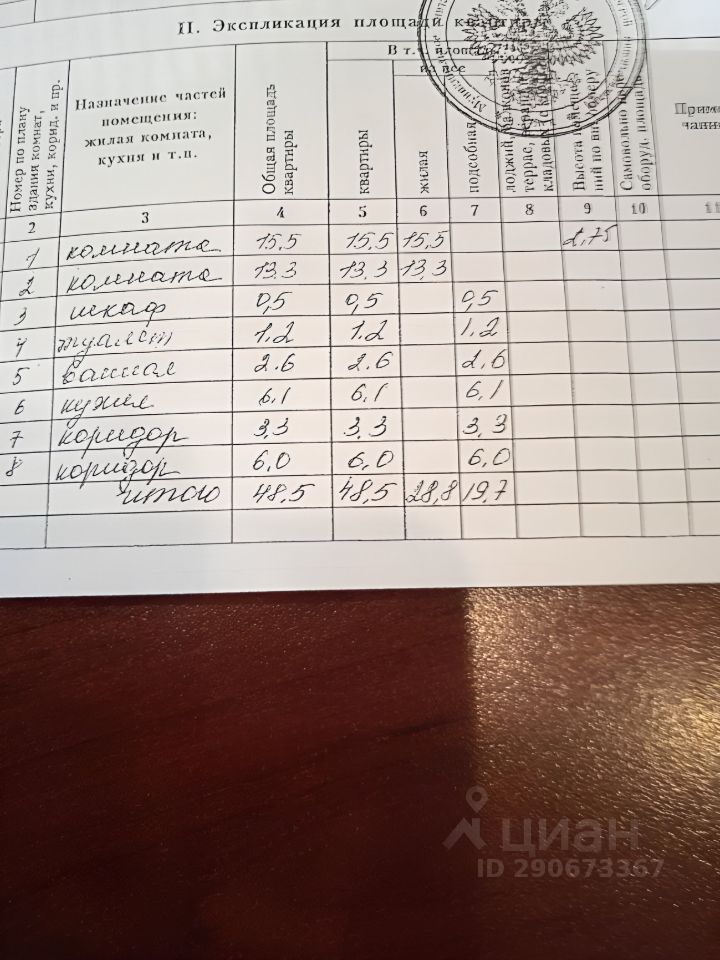 II. Экспликация площади квартиры
Номер по плану
здания комнат,
кухни, корид. и пр.
Назначение частей
помещения:
жилая комната,
кухня и т.п.
Общая площадь
квартиры
В т.ч. площадь
из нее
квартиры
жилая
подсобная
лоджий, балконов
террас,
кладовых
Высота помеще-
ний по внутр. обмеру
Самовольно
оборуд. площадь
Приме
чани
2 3 4 5 6 7 8 9 10 11
1 комната 15,5 15,5 15,5 2,75
2 комната 13,3 13,3 13,3
3 шкаф 0,5 0,5 0,5
4 туалет 1.2 1.2 1.2
5 ванная 2.6 2.6 2,6
6 кухня 6,1 6,1 6,1
7 коридор 3,3 3,3 3,3
8 коридор 6,0 6,0 6,0
итого 48,5 48,5 28,8 19,7
циан
ID 290673367